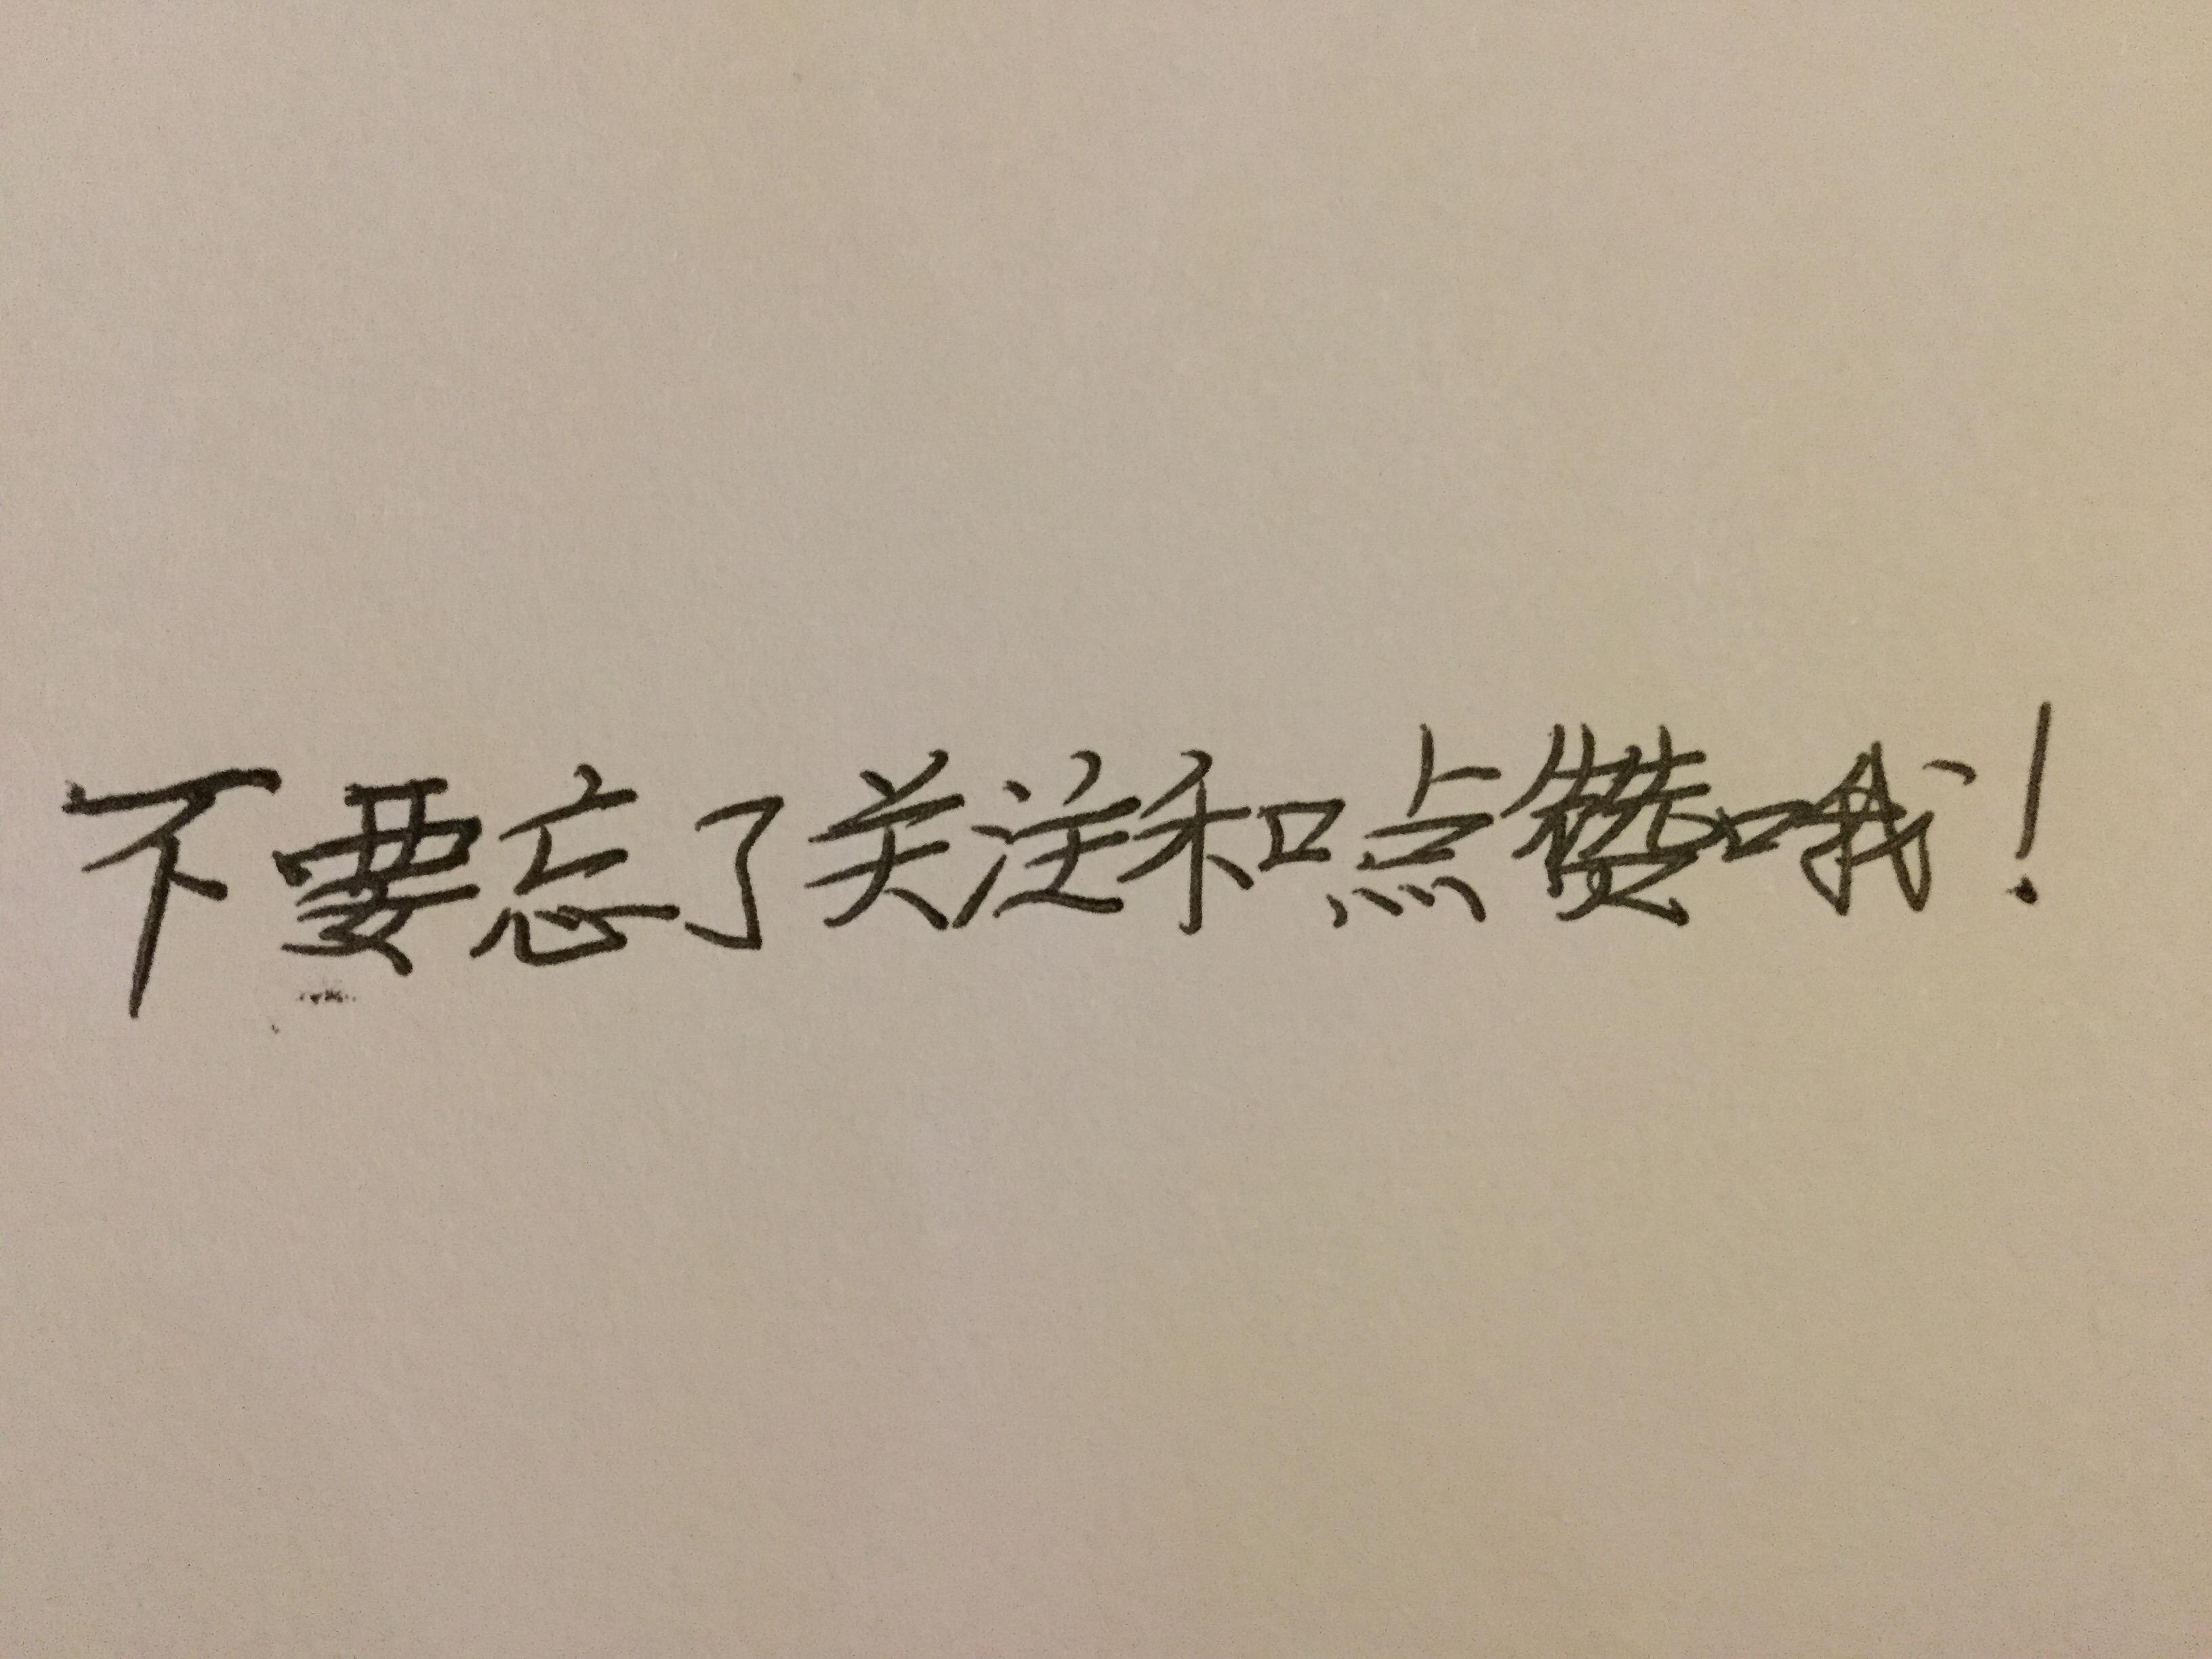 不要忘了关注和点赞哦!